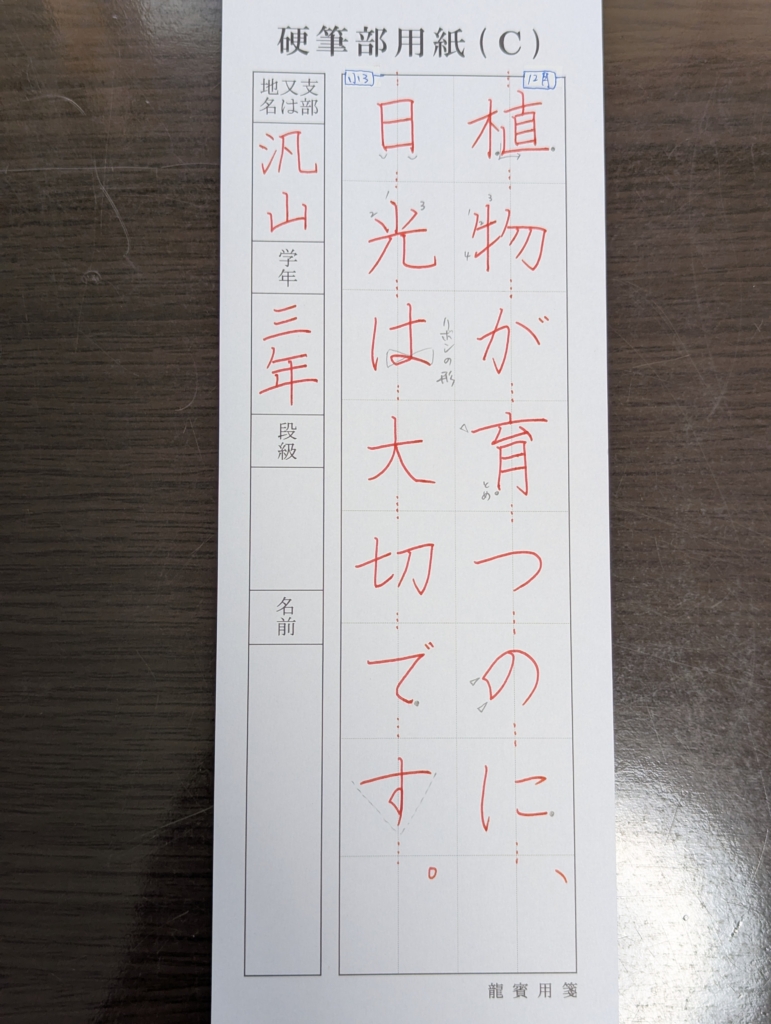 硬筆部用紙(C)
12月
植物が育つのに、
とめ
小3
日光は大切です。
1
2
3
1
2
3
4
リボンの形
支部又は地名
汎山
学年
三年
段級
名前
龍賓用箋